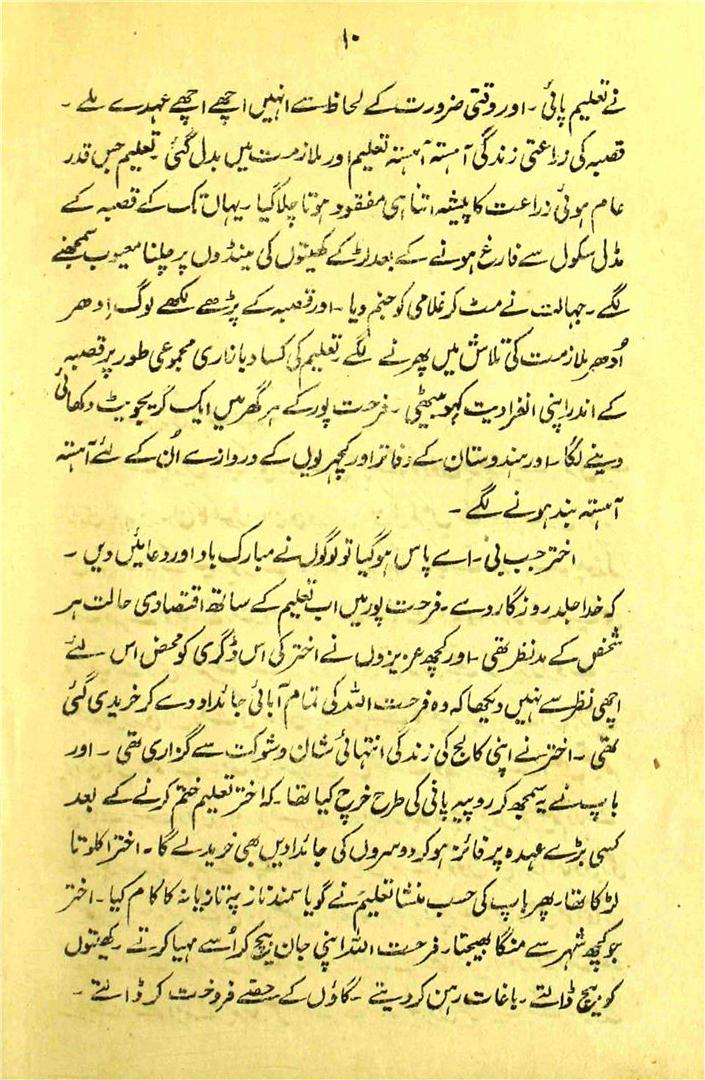 ۱۰
نے تعلیم پائی ۔ اور وقتی ضرورت کے لحاظ سے انہیں اچھے اچھے عہدے ملے ۔
قصبہ کی زراعتی زندگی آہستہ آہستہ تعلیم اور ملازمت میں بدل گئی ۔ تعلیم جس قدر
عام ہوئی زراعت کا پیشہ اتنا ہی مفقود ہوتا چلا گیا ۔ یہاں تک کے قصبہ کے
مڈل سکول سے فارغ ہونے کے بعد لڑکے کھیتوں کی مینڈوں پر چلنا معیوب سمجھنے
لگے ۔ جہالت نے مٹ کر غلامی کو جنم دیا ۔ اور قصبہ کے پڑھے لکھے لوگ اِدھر
اُدھر ملازمت کی تلاش میں پھرنے لگے ۔ تعلیم کی کساد بازاری مجموعی طور پر قصبہ
کے اندر اپنی انفرادیت کھو بیٹھی ۔ فرحت پور کے ہر گھر میں ایک گریجویٹ دکھائی
دینے لگا ۔ اور ہندوستان کے دفاتر اور کچہریوں کے دروازے اُن کے لئے آہستہ
آہستہ بند ہونے لگے ۔
اختر جب بی ۔ اے پاس ہو گیا تو لوگوں نے مبارک باد اور دعائیں دیں ۔
کہ خدا جلد روزگار دے ۔ فرحت پور میں اب تعلیم کے ساتھ اقتصادی حالت ہر
شخص کے مدنظر تھی ۔ اور کچھ عزیزوں نے اختر کی اس ڈگری کو محض اس لئے
اچھی نظر سے نہیں دیکھا کہ وہ فرحت اللہ کی تمام آبائی جائداد دے کر خریدی گئی
تھی ۔ اختر نے اپنی کالج کی زندگی انتہائی شان و شوکت سے گزاری تھی ۔ اور
باپ نے یہ سمجھ کر روپیہ پانی کی طرح خرچ کیا تھا ۔ کہ اختر تعلیم ختم کرنے کے بعد
کسی بڑے عہدہ پر فائز ہو کر دوسروں کی جائدادیں بھی خرید لے گا ۔ اختر اکلوتا
لڑکا تھا ۔ پھر باپ کی حسب منشا تعلیم نے گویا سمند ناز پہ تازیانہ کا کام کیا ۔ اختر
جو کچھ شہر سے منگا بھیجتا ۔ فرحت اللہ اپنی جان بیچ کر اُسے مہیا کرتے ۔ کھیتوں
کو بیچ ڈالتے ۔ باغات رہن کر دیتے ۔ گاؤں کے حصے فروخت کر ڈالتے ۔